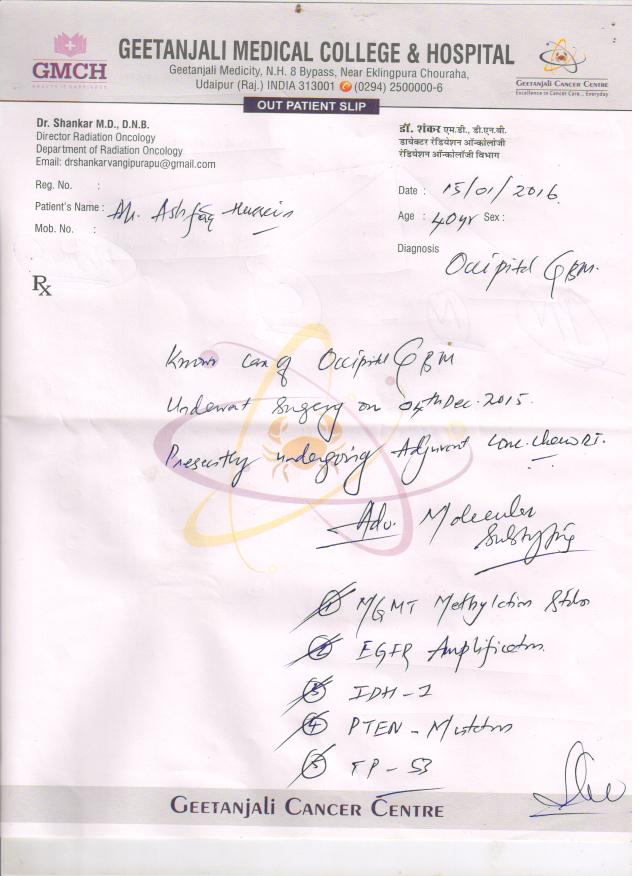 GMCH
GEETANJALI MEDICAL COLLEGE & HOSPITAL
Geetanjali Medicity, N.H. 8 Bypass, Near Eklingpura Chouraha,
Udaipur (Raj.) INDIA 313001 (0294) 2500000-6
GEETANJALI CANCER CENTRE
Excellence in Cancer Care... Everyday
OUT PATIENT SLIP
Dr. Shankar M.D., D.N.B.
Director Radiation Oncology
Department of Radiation Oncology
Email: drshankarvangipurapu@gmail.com
डॉ. शंकर एम.डी., डी.एन.बी.
डायरेक्टर रेडियेशन ऑन्कोलॉजी
रेडियेशन ऑन्कोलॉजी विभाग
Reg. No. :
Patient's Name : Mr. Ashfaq Hussain
Mob. No. :
Date : 15/01/2016
Age : 40yr Sex :
Diagnosis
Occipital GBM.
Rx
Known case of Occipital GBM
Underwent Surgery on 04th Dec. 2015.
Presently undergoing Adjuvant conc. chemoRT.
Adv. Molecular
Subtyping
1 MGMT Methylation Status
2 EGFR Amplification
3 IDH-1
4 PTEN - Mutation
5 TP-53
GEETANJALI CANCER CENTRE